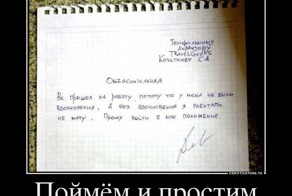 Генеральному
директору
Travel Geo VS
Кочеткову С.А
Объяснительная
Не пришел на работу, потому что у меня не было
вдохновения, а без вдохновения я работать
не могу. Прошу войти в мое положение.
Поймём и простим